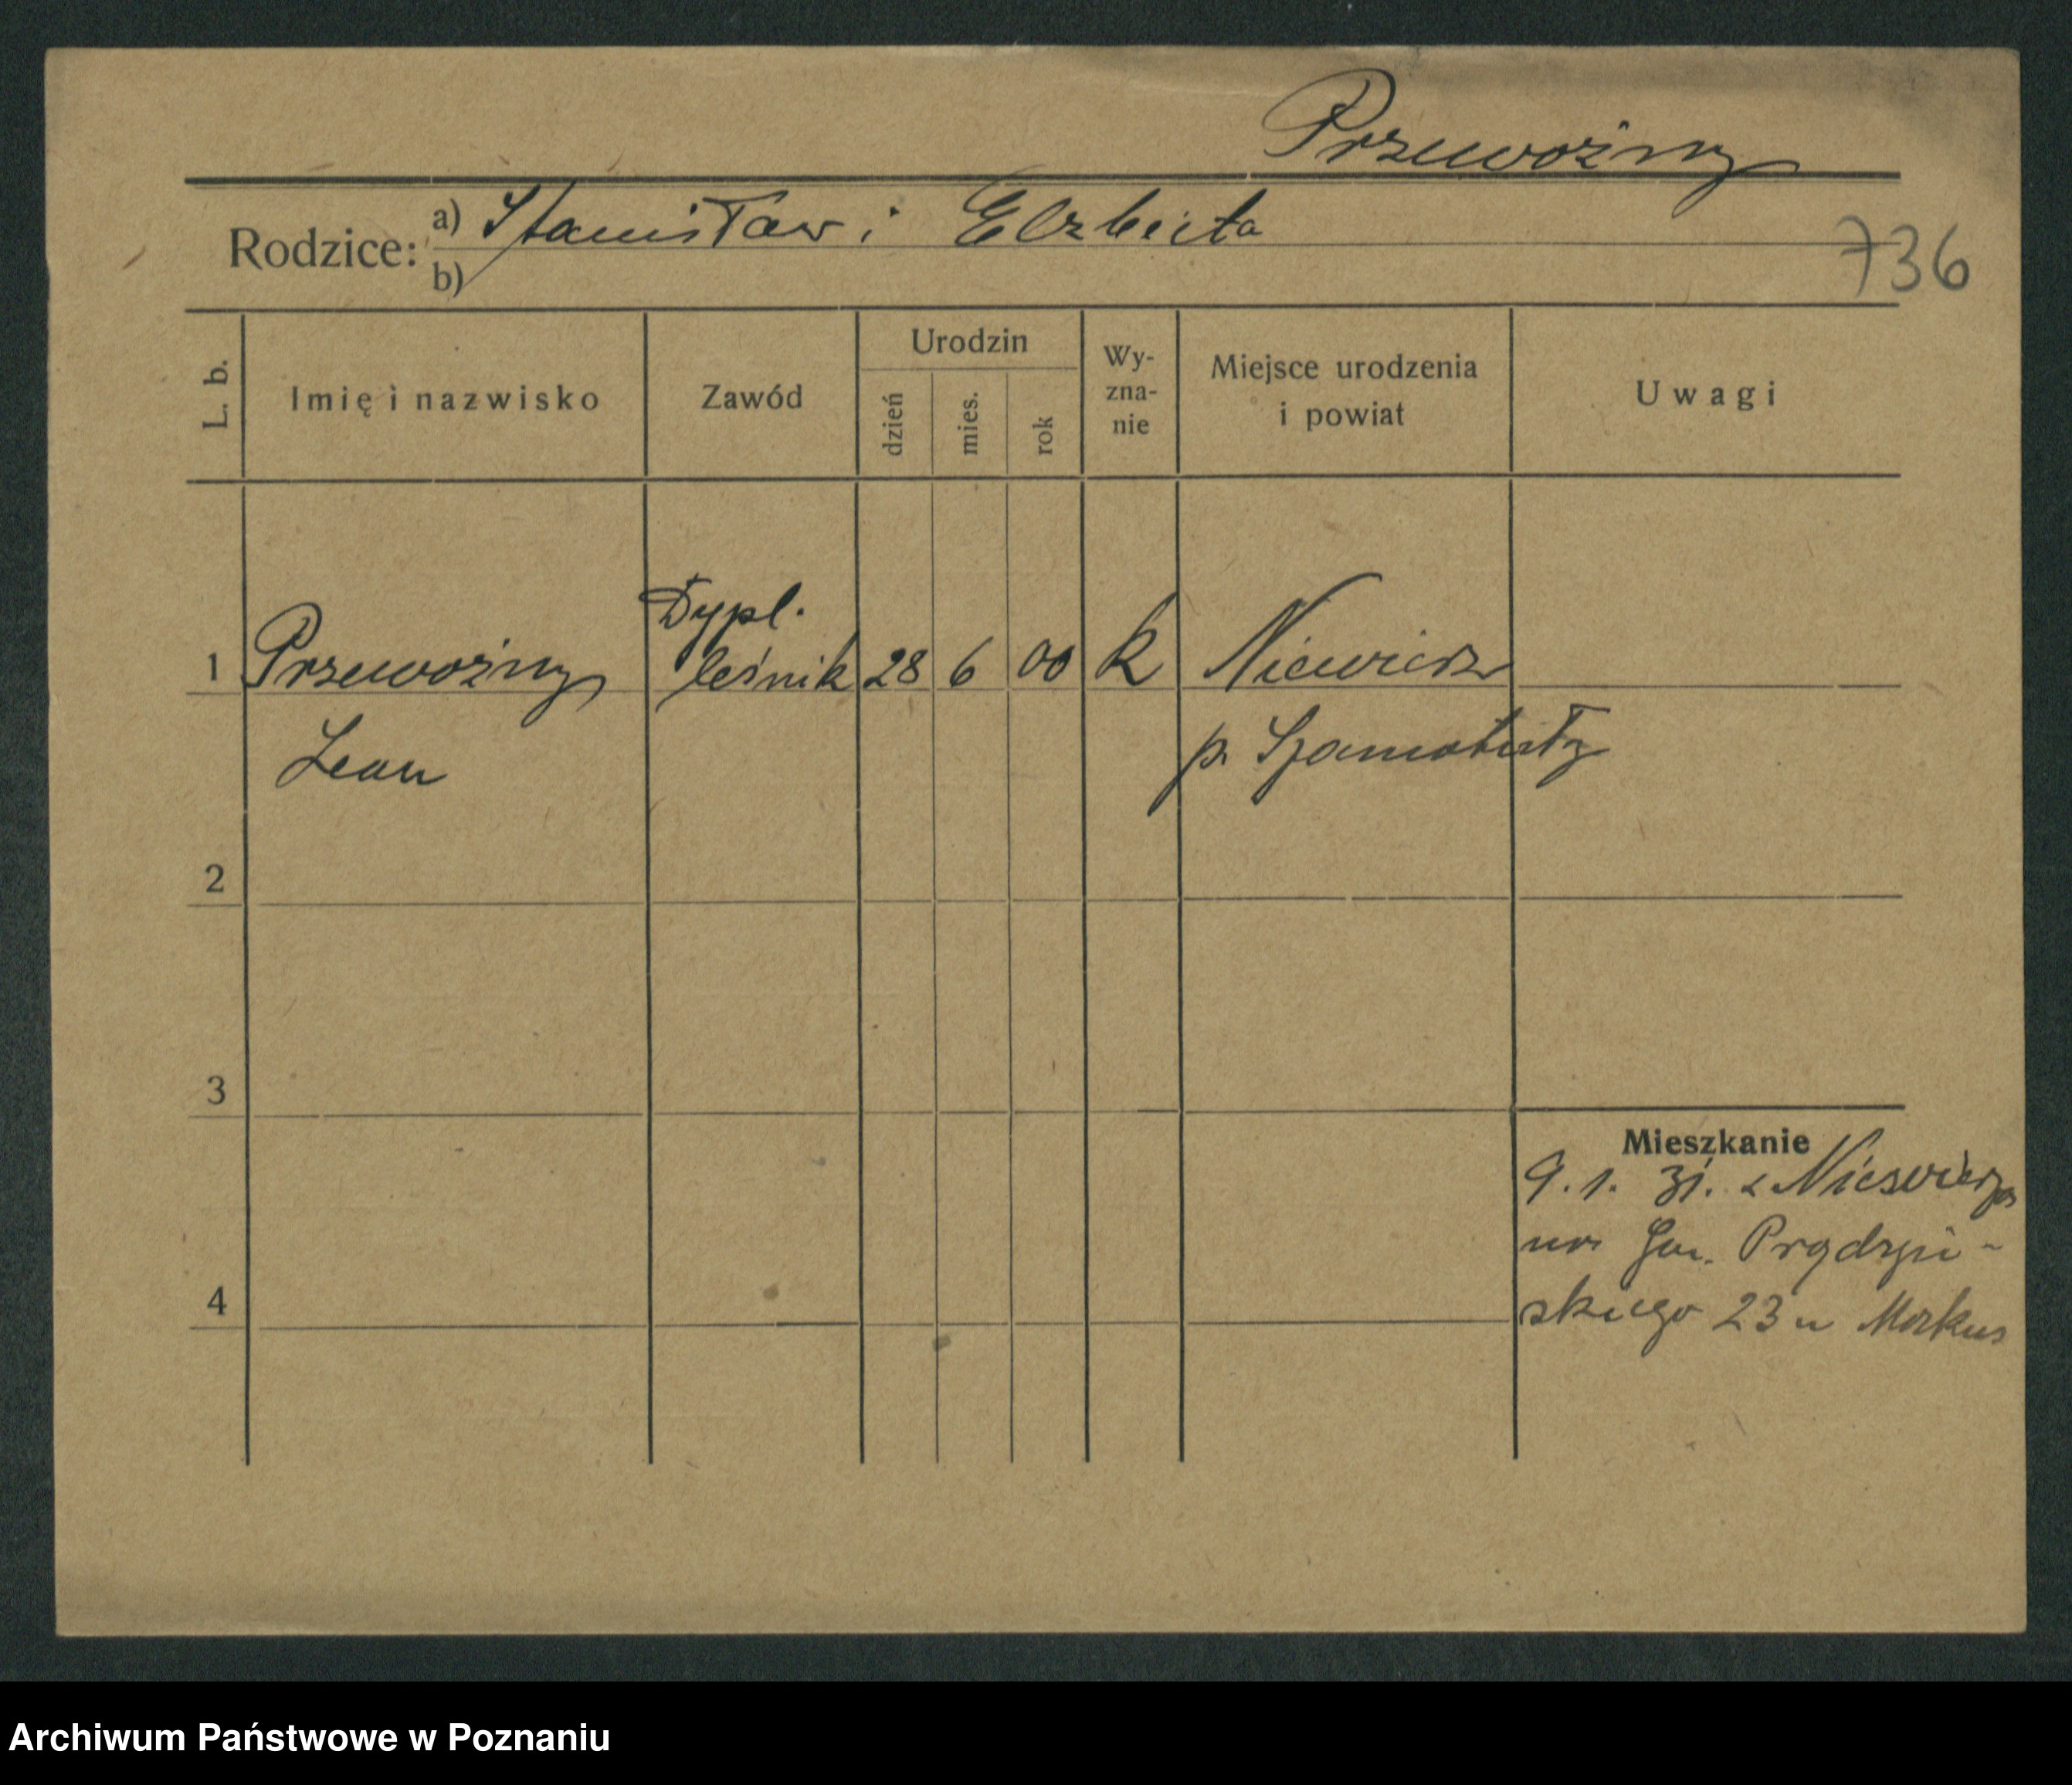 Przewoźny
Rodzice: a) Stanisław i Elzbieta
b)
736
L. b.
Imię i nazwisko
Zawód
Urodzin
dzień
mies.
rok
Wy-
zna-
nie
Miejsce urodzenia
i powiat
Uwagi
Dypl.
1 Przewoźny leśnik 28 6 00 k Niewierz
Leon p. Szamotuły
2
3
Mieszkanie
9. 1. 31. z Niewierza
na Gen. Prądzyń-
4
skiego 23 u
Archiwum Państwowe w Poznaniu